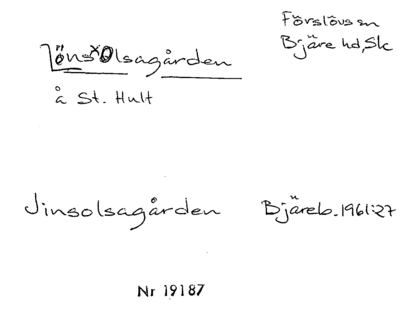 Förslövs sn
Bjäre hd, Sk
Jöns Olsagården
å St. Hult
Jinsolsagården Bjäreb. 1961:27
Nr 19187